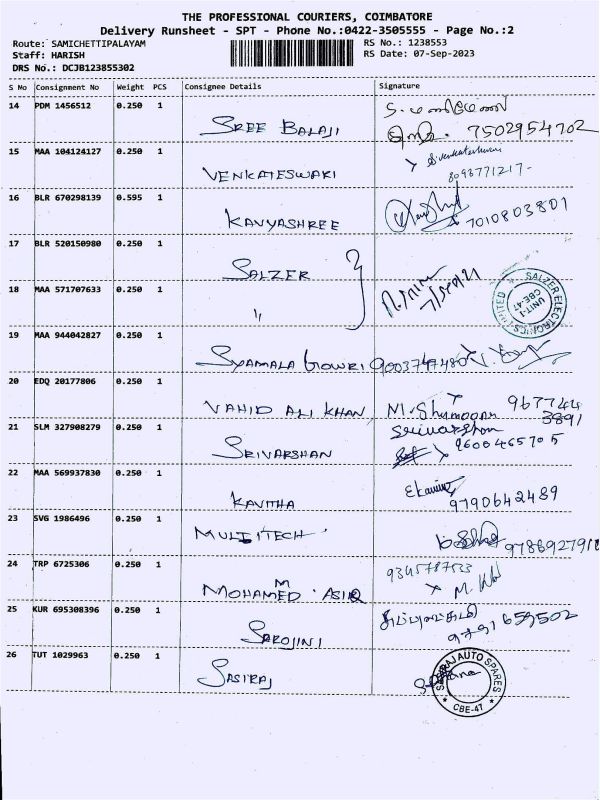 THE PROFESSIONAL COURIERS, COIMBATORE
Delivery Runsheet - SPT - Phone No.:0422-3505555 - Page No.:2
Route: SAMICHETTIPALAYAM
RS No.: 1238553
Staff: HARISH
RS Date: 07-Sep-2023
DRS No.: DCJB123855302
S No Consignment No Weight PCS Consignee Details Signature
14 PDM 1456512 0.250 1
SREE BALAJI 7502954702
15 MAA 104124127 0.250 1
VENKATESWARI 8098771217-
16 BLR 670298139 0.595 1
KAVYASHREE 7010803801
17 BLR 520150980 0.250 1
SALZER
18 MAA 571707633 0.250 1
"
SALZER ELECTRONICS LIMITED
UNIT-I
CBE-47
19 MAA 944042827 0.250 1
SYAMALA GOWRI
20 EDQ 20177806 0.250 1
VAHID ALI KHAN M. Shumogan 967744
3891
21 SLM 327908279 0.250 1
Srivarshan
SRIVARSHAN 9600465705
22 MAA 569937830 0.250 1
KAVITHA 9790642489
23 SVG 1986496 0.250 1
MULTITECH
24 TRP 6725306 0.250 1
MOHAMED ASIQ
25 KUR 695308396 0.250 1
SAROJINI 9791659502
26 TUT 1029963 0.250 1
SASIRAJ
SASIRAJ AUTO SPARES
* CBE-47 *